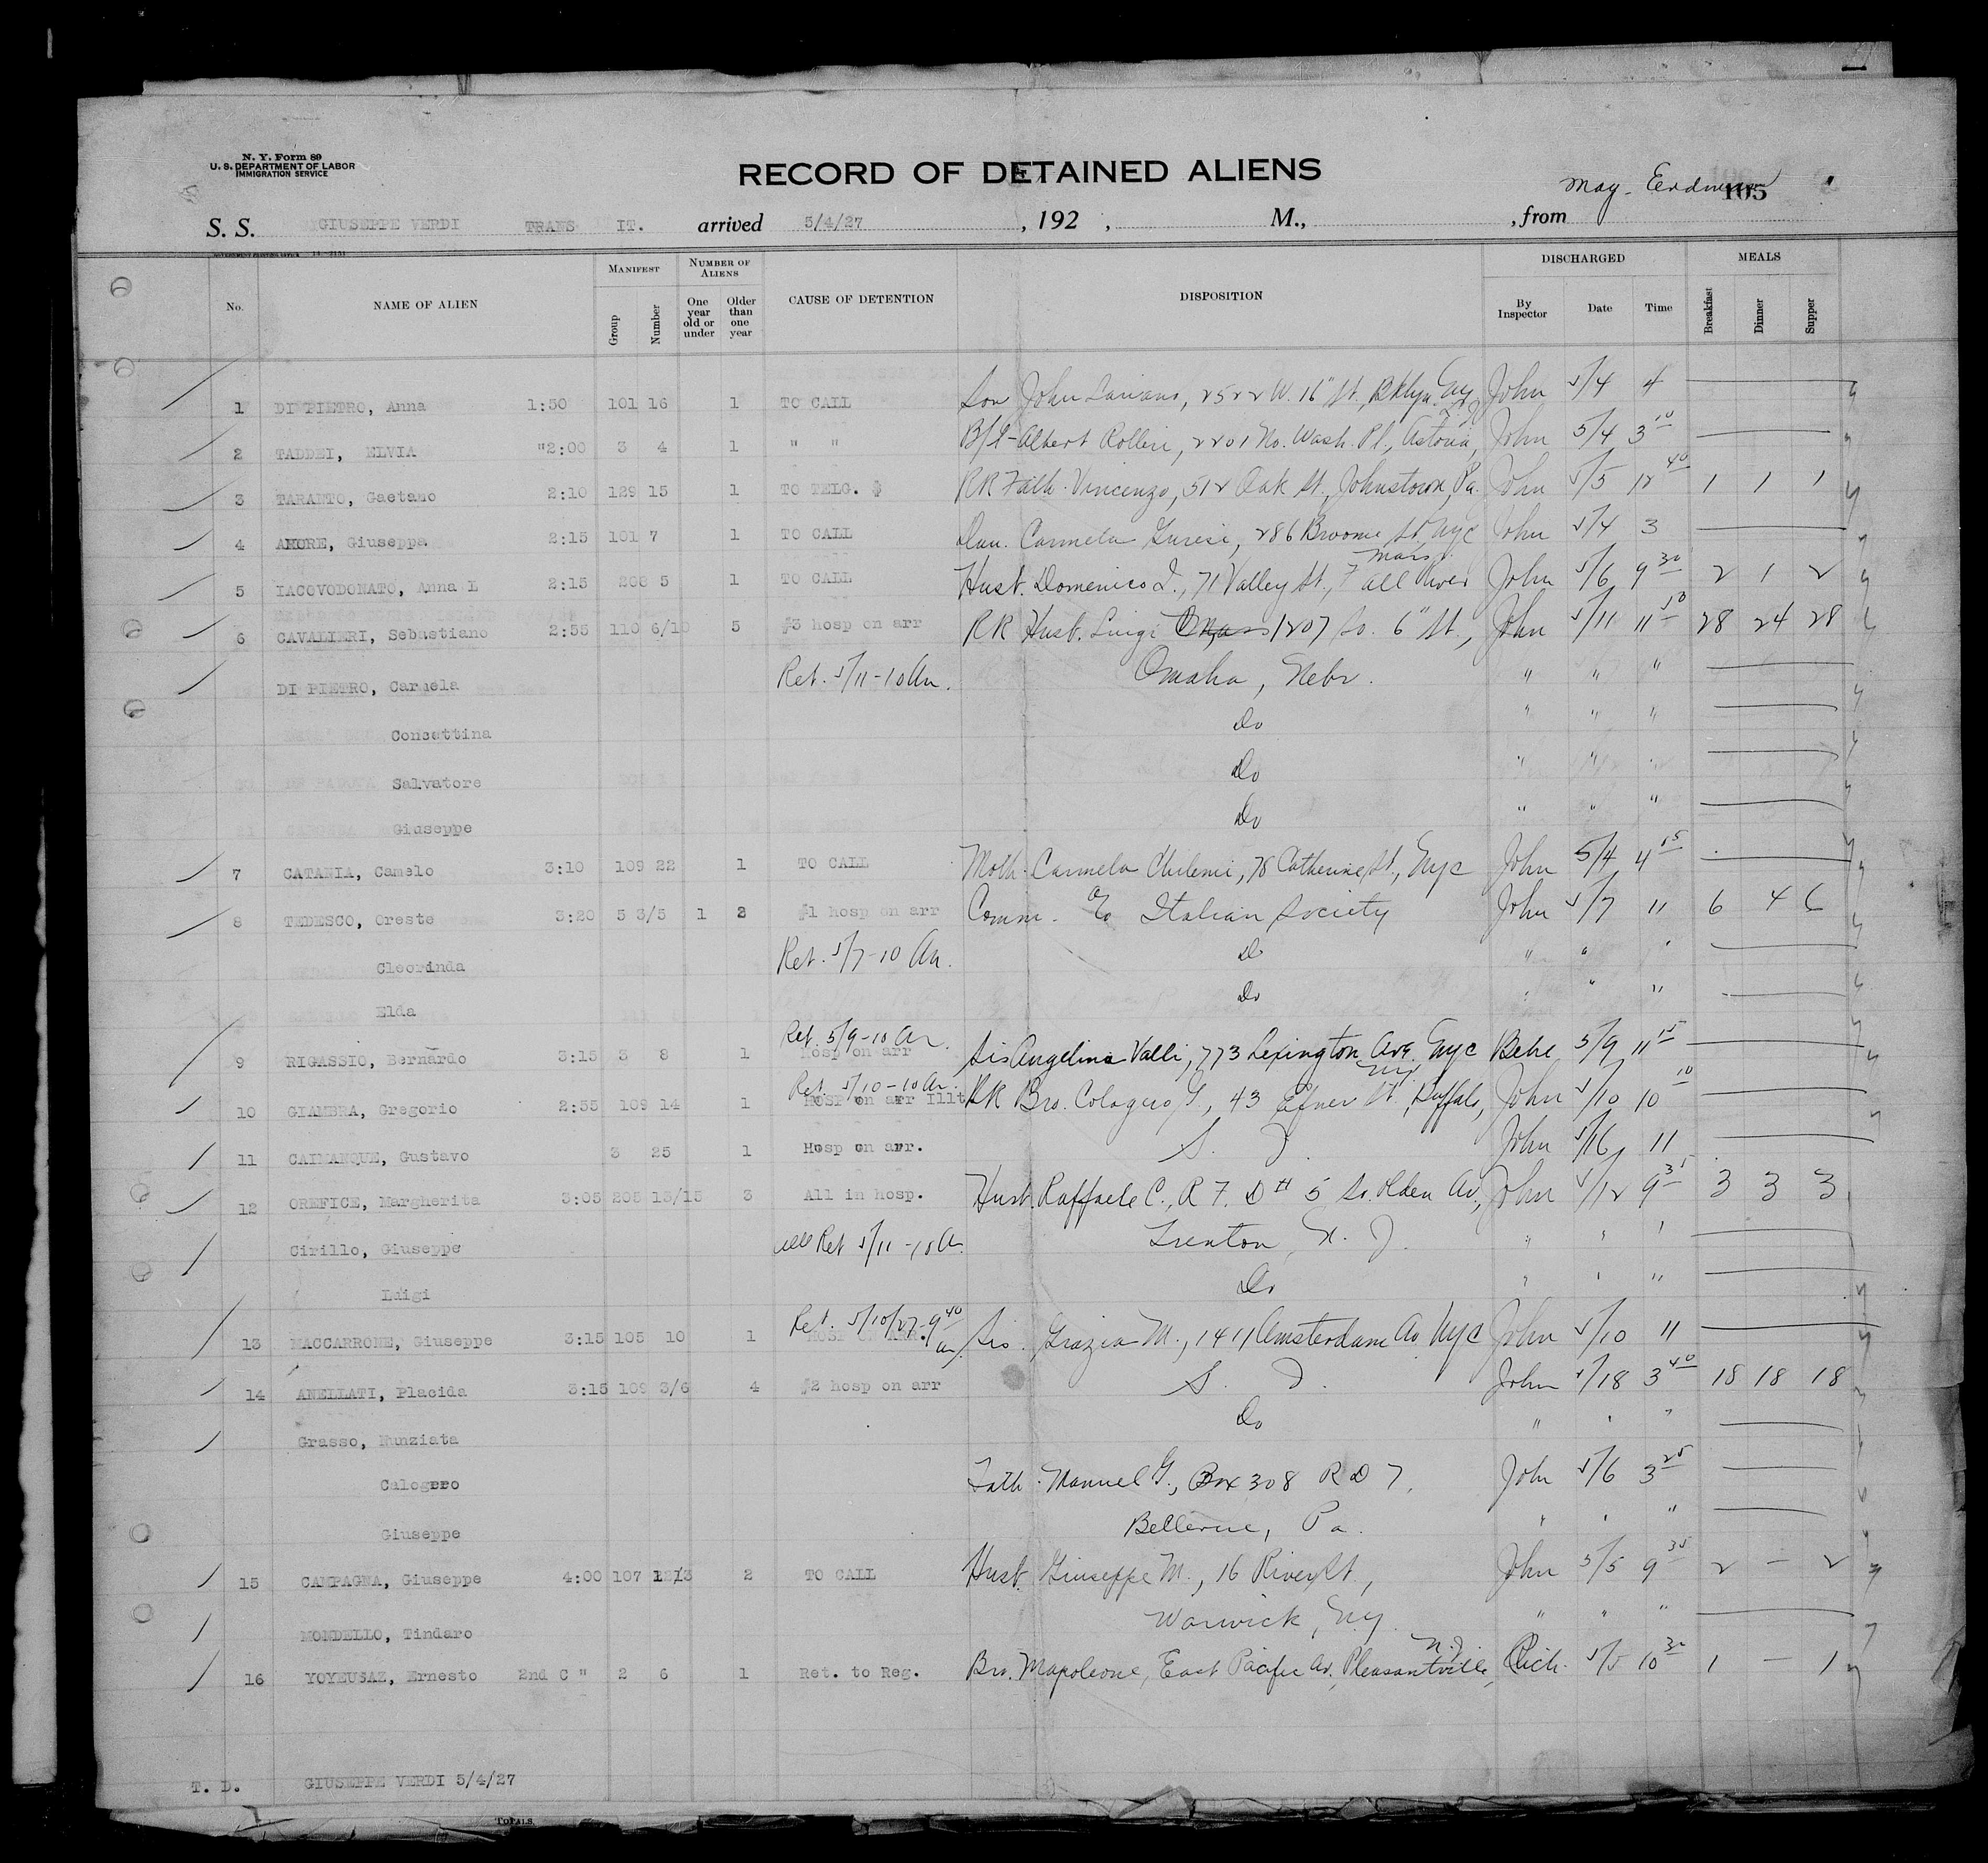 N. Y. Form 89
U. S. DEPARTMENT OF LABOR
IMMIGRATION SERVICE
RECORD OF DETAINED ALIENS
105
S. S. GIUSEPPE VERDI TRANS IT. arrived 5/4/27, 192 , M., , from
No. NAME OF ALIEN MANIFEST Group Number NUMBER OF ALIENS One year old or under Older than one year CAUSE OF DETENTION DISPOSITION DISCHARGED By Inspector Date Time MEALS Breakfast Dinner Supper
1 DI PIETRO, Anna 1:50 101 16 1 TO CALL Son John 2522 W. 16" St., Bklyn. NY John 5/4 4
2 TADDEI, ELVIA "2:00 3 4 1 " " B/L - Albert Rollin, 2201 No. Wash. Pl., Astoria, L.I. John 5/4 3 10
3 TARANTO, Gaetano 2:10 129 15 1 TO TELG. $ RR Fath. Vincenzo, 512 Oak St., Johnstown, Pa. John 5/5 12 40 1 1 1
4 AMORE, Giuseppa 2:15 101 7 1 TO CALL Dau. Carmela 286 Broome St NYC John 5/4 3
5 IACOVODONATO, Anna L 2:15 208 5 1 TO CALL Hust. Domenico I., 71 Valley St., Fall River Mass. John 5/6 9 30 2 1 2
6 CAVALIERI, Sebastiano 2:55 110 6/10 5 #3 hosp on arr RR Husb. Luigi 1207 So. 6" St., John 5/11 11 50 28 24 28
DI PIETRO, Carmela Ret. 5/11-10 An. Omaha, Nebr. " " "
Concettina Do " " "
Salvatore Do " " "
Giuseppe Do " " "
7 CATANIA, Camelo 3:10 109 22 1 TO CALL Moth. Carmela Chilemi, 78 Catherine St., NYC John 5/4 4 15
8 TEDESCO, Oreste 3:20 5 3/5 1 2 #1 hosp on arr Comm. c/o Italian Society John 5/7 11 6 4 6
Cleorinda Ret. 5/7-10 An. Do " " "
Elda Do " " "
9 RIGASSIO, Bernardo 3:15 3 8 1 Hosp on arr Ret. 5/9-10 An. Sis Angelina Valli, 773 Lexington Ave. NYC 5/9 11 15
10 GIAMBRA, Gregorio 2:55 109 14 1 HOSP on arr Illt Ret. 5/10-10 An. RR Bro. Cologero G., 43 Efner St., Buffalo, NY. John 5/10 10 10
11 CAIMANQUE, Gustavo 3 25 1 Hosp on arr. S. I. John 5/16 11
12 OREFICE, Margherita 3:05 205 13/15 3 All in hosp. Hust. Raffaele C., R F. D # 5 So. Olden Av., John 5/12 9 35 3 3 3
Cirillo, Giuseppe All Ret 5/11-10 A. Trenton, N. J. " " "
Luigi Do " " "
13 MACCARRONE, Giuseppe 3:15 105 10 1 Ret. 5/10/27-9 40 an. Sis. Grazia M., 1411 Amsterdam Av NYC John 5/10 11
14 ANELLATI, Placida 3:15 109 3/6 4 #2 hosp on arr S. I. John 5/18 3 40 18 18 18
Grasso, Nunziata Do " " "
Calogero Fath. Manuel G., Box 308 R D 7, John 5/6 3 25
Giuseppe Pa. " " "
15 CAMPAGNA, Giuseppe 4:00 107 12/13 2 TO CALL Hust. Giuseppe M., 16 River St., John 5/5 9 35 2 — 2
MONDELLO, Tindaro Warwick, NY. " " "
16 YOYEUSAZ, Ernesto 2nd C " 2 6 1 Ret. to Reg. Bro. Napoleone, East Pacific Av., Pleasantville, N.J. Rich. 5/5 10 30 1 — 1
T. D. GIUSEPPE VERDI 5/4/27
TOTALS